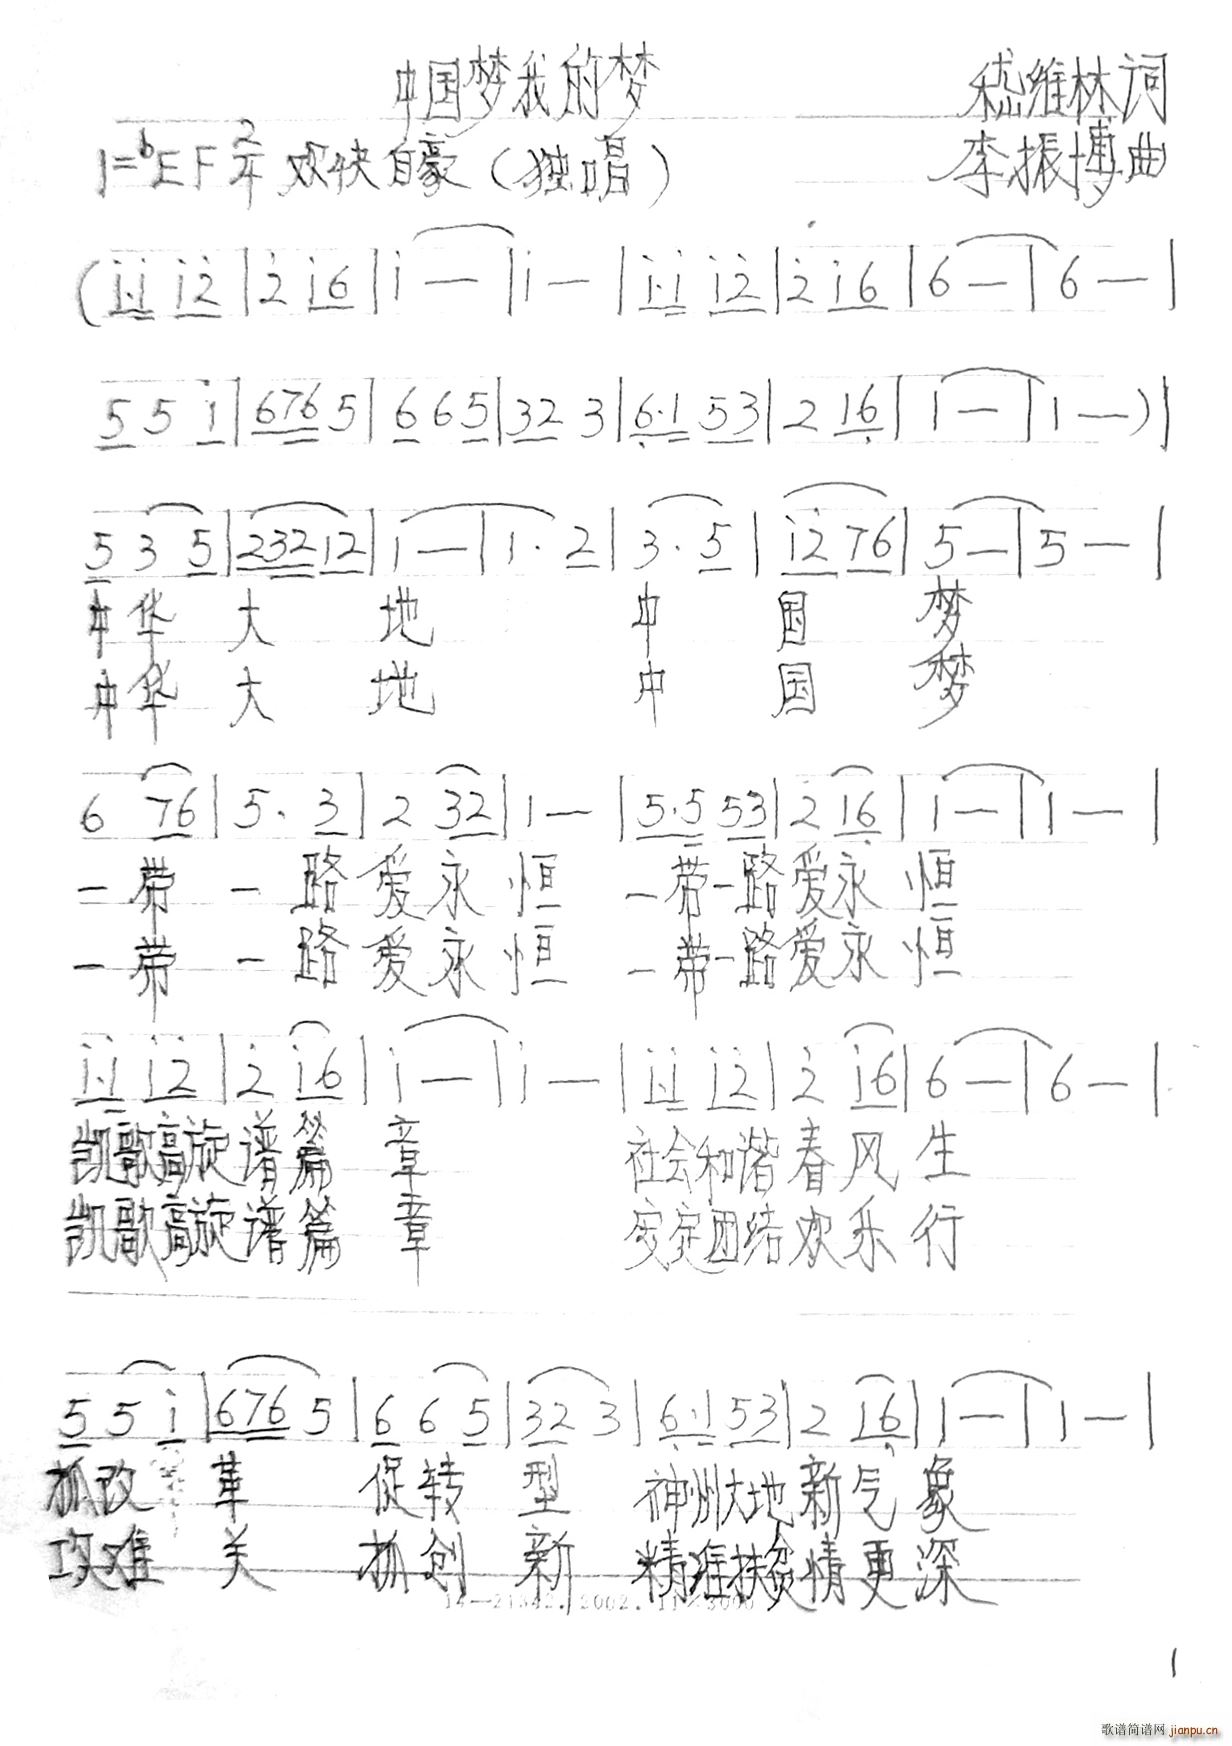 中国梦我的梦
嵇维林词
1=bEF 2/4 欢快自豪（独唱）
李振博曲
(i·i i2|2 i6|i —|i —|i·i i2|2 i6|6 —|6 —|
5 5 i|676 5|6 6 5|32 3|6·1 53|2 16|1 —|1 —)|
5 3 5|23212|1 —|1· 2|3· 5|i2 76|5 —|5 —|
中华 大 地 中 国 梦
中华 大 地 中 国 梦
6 76|5· 3|2 32|1 —|5·5 53|2 16|1 —|1 —|
一带 一 路爱永恒 一带一路爱永恒
一带 一 路爱永恒 一带一路爱永恒
i·i i2|2 i6|i —|i —|i·i i2|2 i6|6 —|6 —|
凯歌高旋谱篇 章 社会和谐春风生
凯歌高旋谱篇 章 安定团结欢乐行
5 5 i|676 5|6 6 5|32 3|6·1 53|2 16|1 —|1 —|
抓改 革 促转 型 神州大地新气象
攻难 关 抓创 新 精准扶贫情更深
14—21342.2002.11×3000
1
歌谱简谱网 jianpu.cn